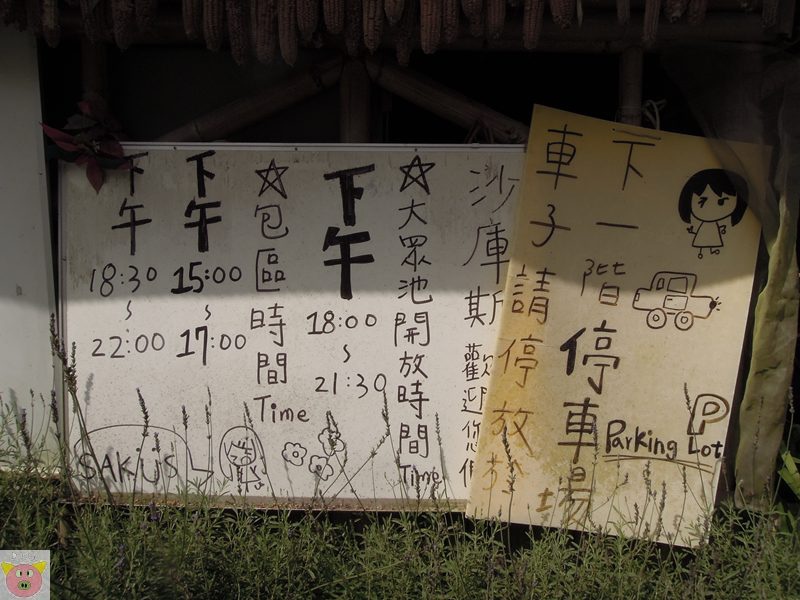 車子請停放於
下一階停車場
Parking Lot
P
沙庫斯歡迎您
☆大眾池開放時間
Time
下午
18:00
~
21:30
☆包區時間
Time
下午
15:00
~
17:00
下午
18:30
~
22:00
SAKÜS